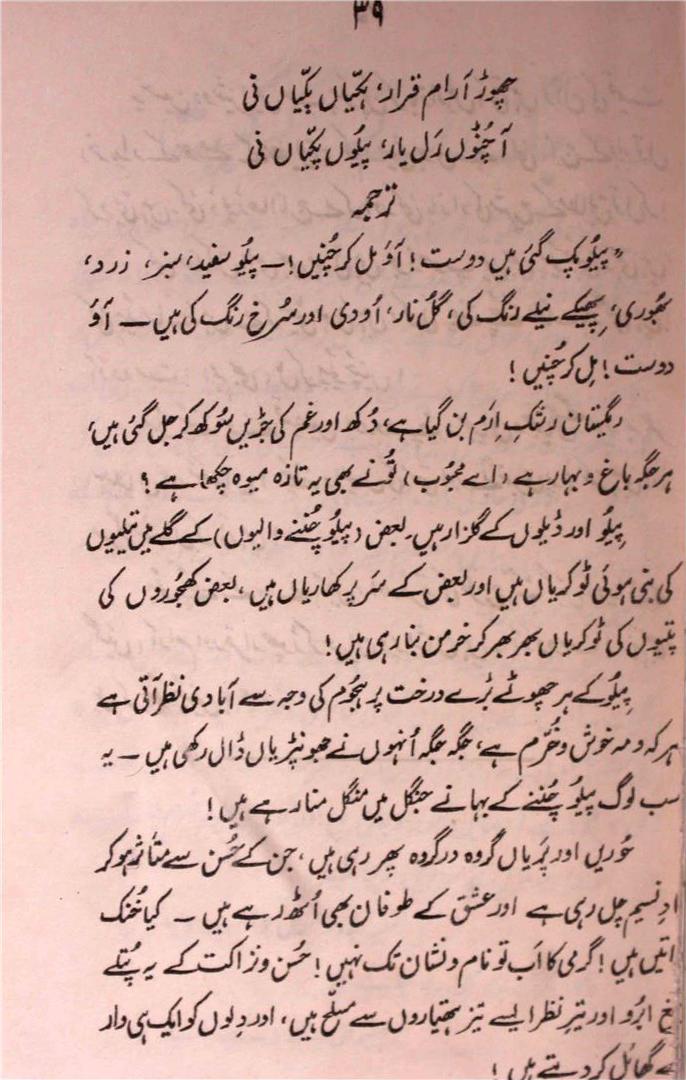 ۳۹
چھوڑ آرام قرار، ہکیّاں بکیّاں نی
آ چُنُوں رَل یار، پیلُوں پکیّاں نی
ترجمہ
"پیلُو پک گئی ہیں دوست! آؤ مل کر چُنیں! ــ پیلُو سفید، سبز، زرد،
بھُوری، پھیکے نیلے رنگ کی، گُل نار، اُودی اور سُرخ رنگ کی ہیں ــ آؤ
دوست! مِل کر چُنیں!
ریگستان رشکِ اِرَم بن گیا ہے، دُکھ اور غم کی جڑیں سُوکھ کر جل گئی ہیں،
ہر جگہ باغ و بہار ہے (اے محبُوب) تُونے بھی یہ تازہ میوہ چکھا ہے؟
پیلُو اور ڈیلوں کے گلزار ہیں۔ بعض (پیلُو چُننے والیوں) کے گلے میں تیلیوں
کی بنی ہوئی ٹوکریاں ہیں اور بعض کے سَر پر کھاریاں ہیں، بعض کھجُوروں کی
پتیوں کی ٹوکریاں بھر بھر کر خرمن بنا رہی ہیں!
پیلُو کے ہر چھوٹے بڑے درخت پر ہجُوم کی وجہ سے آبادی نظر آتی ہے
ہر کہ و مہ خوش و خُرّم ہے، جگہ جگہ اُنہوں نے جھونپڑیاں ڈال رکھی ہیں ــ یہ
سب لوگ پیلُو چُننے کے بہانے جنگل میں منگل منا رہے ہیں!
حُوریں اور پَریاں گروہ در گروہ پھر رہی ہیں، جن کے حُسن سے متأثر ہو کر
ادِ نسیم چل رہی ہے اور عشق کے طوفان بھی اُٹھ رہے ہیں ــ کیا خُنک
اتیں ہیں! گرمی کا اَب تو نام و نشان تک نہیں! حُسن و نزاکت کے یہ پُتلے
غِ ابرُو اور تیرِ نظر ایسے تیز ہتیاروں سے مسلّح ہیں، اور دِلوں کو ایک ہی وار
سے گھائل کر دیتے ہیں!